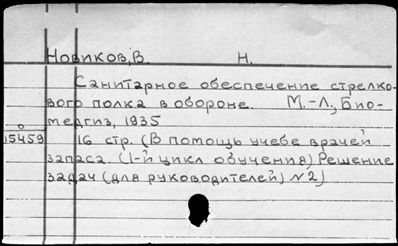 Новиков, В. Н.
Санитарное обеспечение стрелко-
вого полка в обороне. М.-Л., Био-
медгиз, 1935
о
15459 16 стр. (В помощь учебе врачей
запаса. (1-й цикл обучения) Решение
задач (для руководителей) №2)